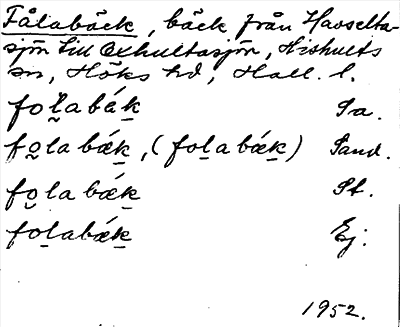 Fålabäck, bäck från Hasselta-
sjön till Exhultasjön, Hishults
sn, Höks hd, Hall. l.
fo̬l̬abæ̂k̲ Sa.
fo̬labǽk̲, (fol̲abǽk̲) Sand.
fo̬labǽk̲ St.
fol̲abǽk̲ Ej.
1952.